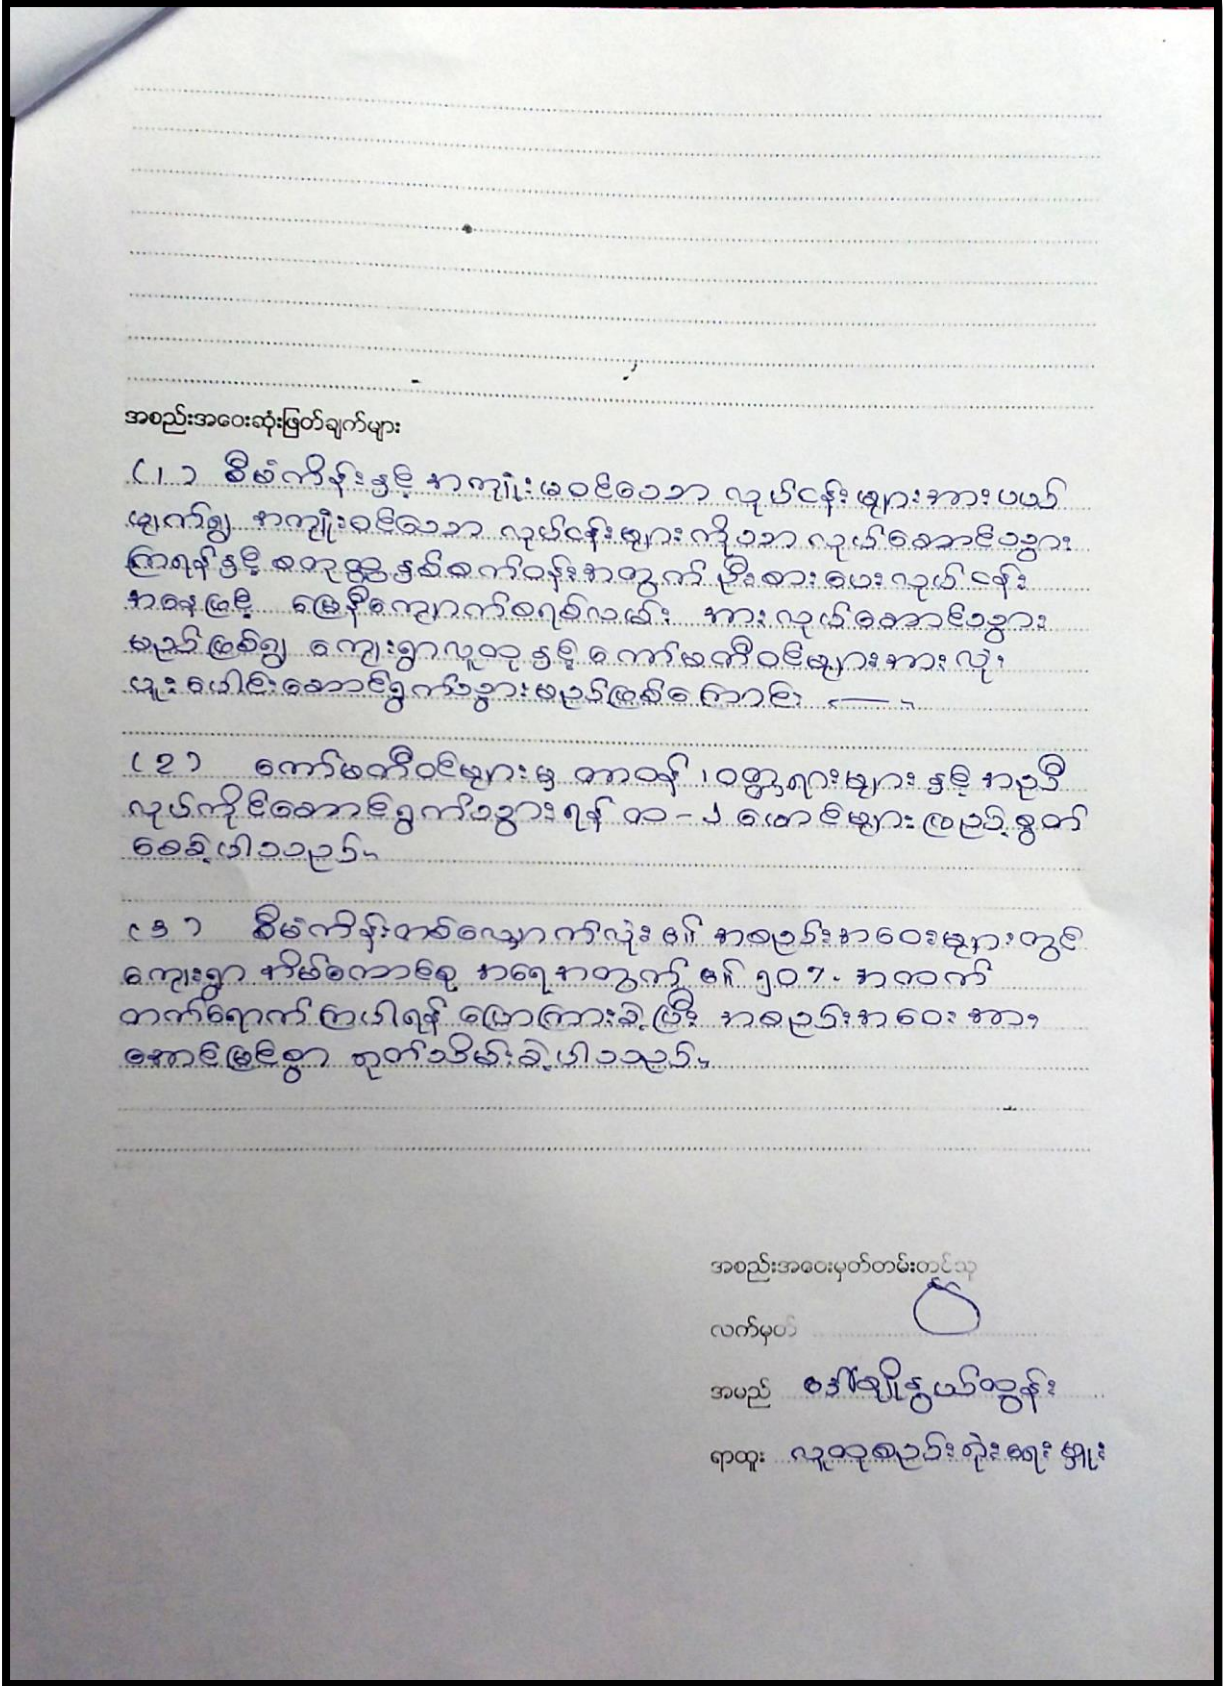 အစည်းအဝေးဆုံးဖြတ်ချက်များ
(၁) စီမံကိန်းနှင့် အကျုံးမဝင်သော လုပ်ငန်းများအား ပယ်
ဖျက်၍ အကျုံးဝင်သော လုပ်ငန်းများကိုသာ လုပ်ဆောင်သွား
ကြရန်နှင့် စတုတ္ထနှစ်စက်ဝန်းအတွက် ဦးစားပေးလုပ်ငန်း
အနေဖြင့် မြေနီကျောက်စရစ်လမ်း အားလုပ်ဆောင်သွား
မည်ဖြစ်၍ ကျေးရွာလူထုနှင့် ကော်မတီဝင်များအားလုံး
ပူးပေါင်းဆောင်ရွက်သွားမည်ဖြစ်ကြောင်း ။
(၂) ကော်မတီဝင်များမှ တာဝန်၊ ဝတ္တရားများနှင့်အညီ
လုပ်ကိုင်ဆောင်ရွက်သွားရန် ထ-၂ ဖောင်များဖြည့်စွတ်
စေခဲ့ပါသည်။
(၃) စီမံကိန်းတစ်လျှောက်လုံး၏ အစည်းအဝေးများတွင်
ကျေးရွာ အိမ်ထောင်စု အရေအတွက်၏ ၅၀% အထက်
တက်ရောက်ကြပါရန် ပြောကြားခဲ့ပြီး အစည်းအဝေးအား
အောင်မြင်စွာ ရုတ်သိမ်းခဲ့ပါသည်။
အစည်းအဝေးမှတ်တမ်းတင်သူ
လက်မှတ်
အမည် ဒေါ်ချိုနွယ်ထွန်း
ရာထူး လူထုစည်းရုံးရေးမှူး